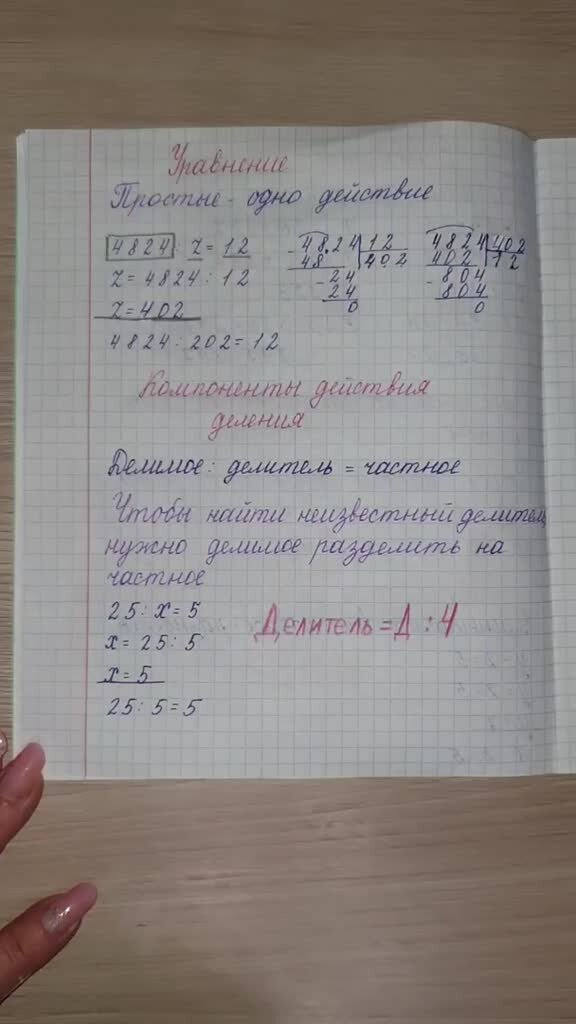 Уравнение
Простые - одно действие
4824 : z = 12
z = 4824 : 12
z = 402
4824 : 202 = 12
4824 12
48 402
- 24
24
0
4824 402
402 12
- 804
804
0
Компоненты действия
деления
Делимое : делитель = частное
Чтобы найти неизвестный делитель,
нужно делимое разделить на
частное
25 : x = 5
x = 25 : 5
x = 5
25 : 5 = 5
Делитель = Д : Ч